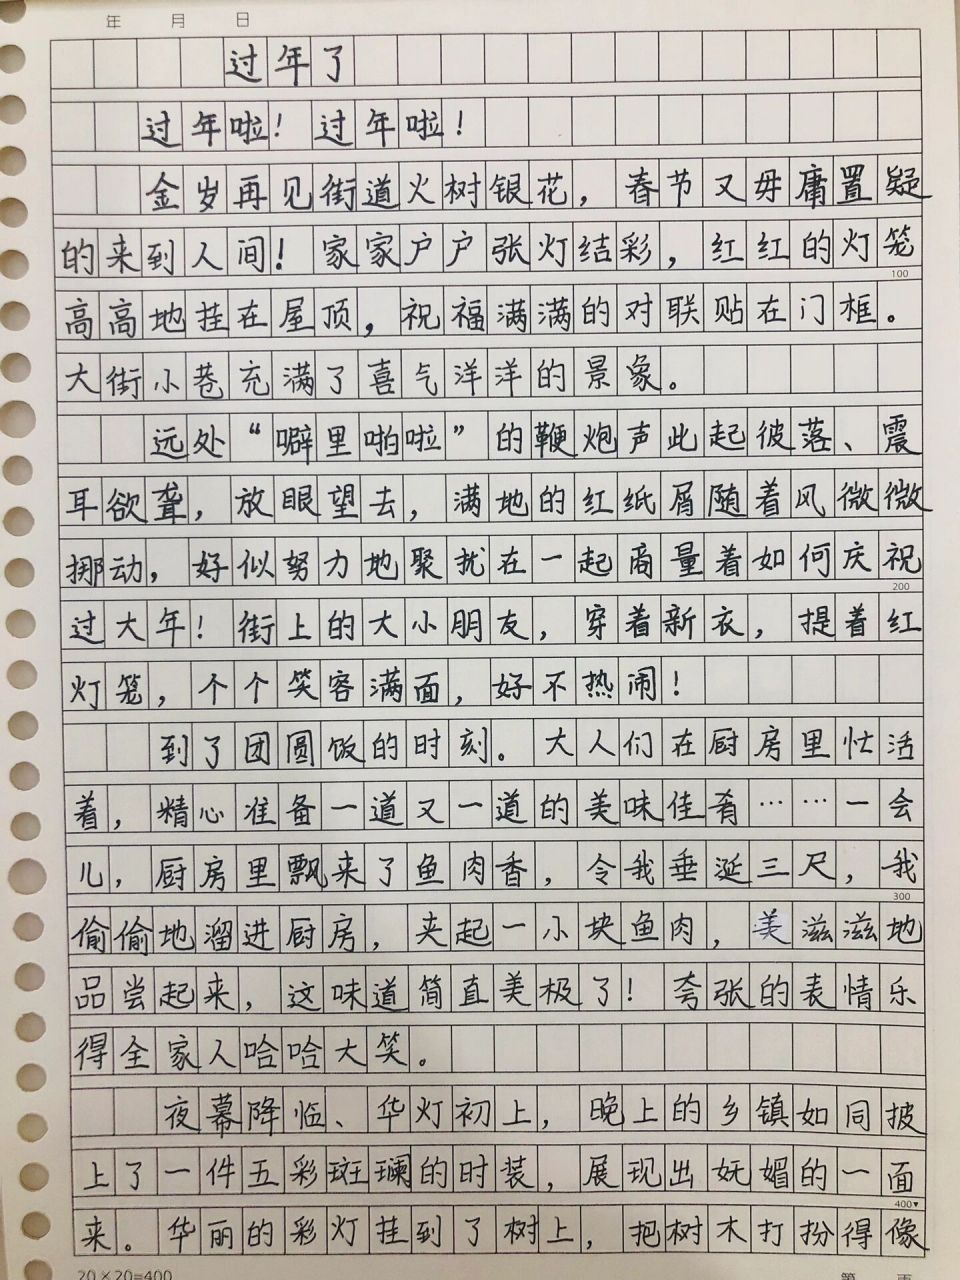 年 月 日
过年了
过年啦！过年啦！
金岁再见街道火树银花，春节又毋庸置疑
的来到人间！家家户户张灯结彩，红红的灯笼
100
高高地挂在屋顶，祝福满满的对联贴在门框。
大街小巷充满了喜气洋洋的景象。
远处“噼里啪啦”的鞭炮声此起彼落、震
耳欲聋，放眼望去，满地的红纸屑随着风微微
挪动，好似努力地聚扰在一起商量着如何庆祝
200
过大年！街上的大小朋友，穿着新衣，提着红
灯笼，个个笑容满面，好不热闹！
到了团圆饭的时刻。大人们在厨房里忙活
着，精心准备一道又一道的美味佳肴……一会
儿，厨房里飘来了鱼肉香，令我垂涎三尺，我
300
偷偷地溜进厨房，夹起一小块鱼肉，美滋滋地
品尝起来，这味道简直美极了！夸张的表情乐
得全家人哈哈大笑。
夜幕降临、华灯初上，晚上的乡镇如同披
上了一件五彩斑斓的时装，展现出妩媚的一面
400▼
来。华丽的彩灯挂到了树上，把树木打扮得像
20×20=400 第 页